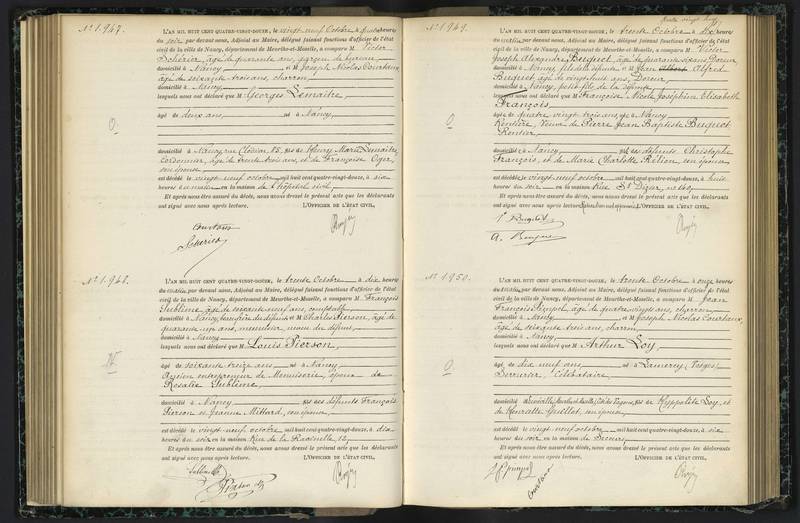 Nº 1947.
L'AN MIL HUIT CENT QUATRE-VINGT-DOUZE, le vingt neuf Octobre à quatre heures
du soir, par devant nous, Adjoint au Maire, délégué faisant fonctions d'officier de l'état
civil de la ville de Nancy, département de Meurthe-et-Moselle, a comparu M Victor
âgé de quarante ans, garçon de bureau
domicilié à Nancy et M Joseph Nicolas Courteux,
âgé de soixante trois ans, charron
domicilié à Nancy
lesquels nous ont déclaré que M Georges Lemaitre,
âgé de deux ans, né à Nancy,
domicilié à Nancy, rue 85, fils de Henry Marie Lemaitre,
Cordonnier, âgé de trente trois ans, et de Françoise Oger,
son épouse
est décédé le vingt neuf octobre mil huit cent quatre-vingt-douze, à six
heures du matin en la maison de l'hôpital civil,
Et après nous être assuré du décès, nous avons dressé le présent acte que les déclarants
ont signé avec nous après lecture. L'OFFICIER DE L'ÉTAT CIVIL,
Nº 1948.
L'AN MIL HUIT CENT QUATRE-VINGT-DOUZE, le trente Octobre à dix heures
du matin, par devant nous, Adjoint au Maire, délégué faisant fonctions d'officier de l'état
civil de la ville de Nancy, département de Meurthe-et-Moselle, a comparu M François
Sublime, âgé de soixante neuf ans, comptable
domicilié à Nancy, beau frère du défunt et M Charles Pierson, âgé de
quarante un ans, menuisier, neveu du défunt,
domicilié à Nancy
lesquels nous ont déclaré que M Louis Pierson,
âgé de soixante treize ans né à Nancy,
Ancien entrepreneur de Menuiserie, époux de
Rosalie Sublime,
domicilié à Nancy fils des défunts François
Pierson et Jeanne Mittard, son épouse
est décédé le vingt neuf octobre mil huit cent quatre-vingt-douze, à dix
heures du soir en la maison Rue de la Ravinelle, 12,
Et après nous être assuré du décès, nous avons dressé le présent acte que les déclarants
ont signé avec nous après lecture. L'OFFICIER DE L'ÉTAT CIVIL,
Nº 1949.
L'AN MIL HUIT CENT QUATRE-VINGT-DOUZE, le trente Octobre à dix heures
du matin, par devant nous, Adjoint au Maire, délégué faisant fonctions d'officier de l'état
civil de la ville de Nancy, département de Meurthe-et-Moselle, a comparu M Victor
Joseph Alexandre Buquet, âgé de quarante sept ans, Doreur,
domicilié à Nancy, fils de la défunte et M Jean Albert Alfred
Buquet, âgé de vingt huit ans, Doreur,
domicilié à Nancy, petit-fils de la défunte
lesquels nous ont déclaré que M Françoise Nicole Joséphine Elisabeth
François,
âgée de quatre vingt trois ans née à Nancy
Rentière, Veuve de Pierre Jean Baptiste Buquet
Rentier,
domicilié à Nancy fille des défunts Christophe
François, et de Marie Charlotte son épouse
est décédée le vingt neuf octobre mil huit cent quatre-vingt-douze, à huit
heures du soir en la maison Rue St Dizier, nº 140,
Et après nous être assuré du décès, nous avons dressé le présent acte que les déclarants
ont signé avec nous après lecture L'OFFICIER DE L'ÉTAT CIVIL,
Nº 1950.
L'AN MIL HUIT CENT QUATRE-VINGT-DOUZE, le trente Octobre à onze heures
du matin, par devant nous, Adjoint au Maire, délégué faisant fonctions d'officier de l'état
civil de la ville de Nancy, département de Meurthe-et-Moselle, a comparu M Jean
François âgé de quatre vingts ans, charron
domicilié à Nancy et M Joseph Nicolas Courteux,
âgé de soixante trois ans, charron
domicilié à Nancy
lesquels nous ont déclaré que M Arthur Loy,
âgé de dix neuf ans né à Lamerey, Vosges,
Serrurier, Célibataire,
domicilié à fils de Hyppolite Loy, et
de Henriette Guillot, son épouse,
est décédé le vingt neuf octobre mil huit cent quatre-vingt-douze, à six
heures du soir en la maison de Secours
Et après nous être assuré du décès, nous avons dressé le présent acte que les déclarants
ont signé avec nous après lecture. L'OFFICIER DE L'ÉTAT CIVIL,